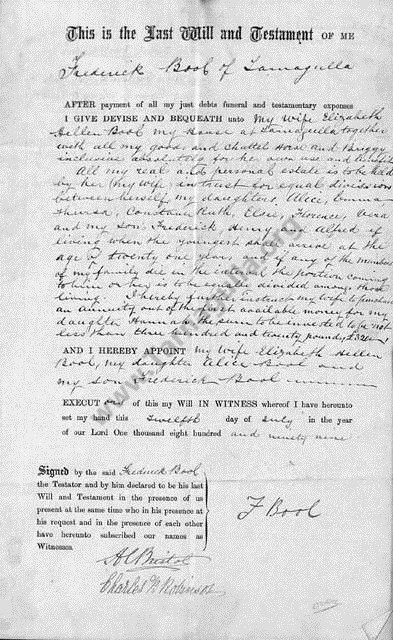 This is the Last Will and Testament OF ME
Frederick Bool of Tarnagulla
AFTER payment of all my just debts funeral and testamentary expenses
I GIVE DEVISE AND BEQUEATH unto My wife Elizabeth
Hellen Bool my House at Tarnagulla together
with all my goods and Chattel Horse and Buggy
inclusive absolutely for her own use and benefit
All my real and personal estate is to be held
by her (My wife) in trust for equal division
between herself, my daughters, Alice, Emma
Thirsa, Constance Ruth, Elsie, Florence, Vera
and my sons Frederick, Henry and Alfred if
living when the youngest shall arrive at the
age of twenty one years, and if any of the members
of my family die in the interim the portion coming
to him or her is to be equally divided among those
living. I hereby further instruct my wife to purchase
an annuity out of the first available money for my
daughter Hannah, the sum to be invested to be not
less than three hundred and twenty pounds, £320
AND I HEREBY APPOINT My wife Elizabeth Hellen
Bool, my daughter Alice Bool and
my son Frederick Bool
EXECUT ors of this my Will IN WITNESS whereof I have hereunto
set my hand this twelfth day of July in the year
of our Lord One thousand eight hundred and ninety nine
Signed by the said Frederick Bool
the Testator and by him declared to be his last
Will and Testament in the presence of us
present at the same time who in his presence at
his request and in the presence of each other
have hereunto subscribed our names as
Witnesses.
F Bool
A C Bristol
Charles W Robinson